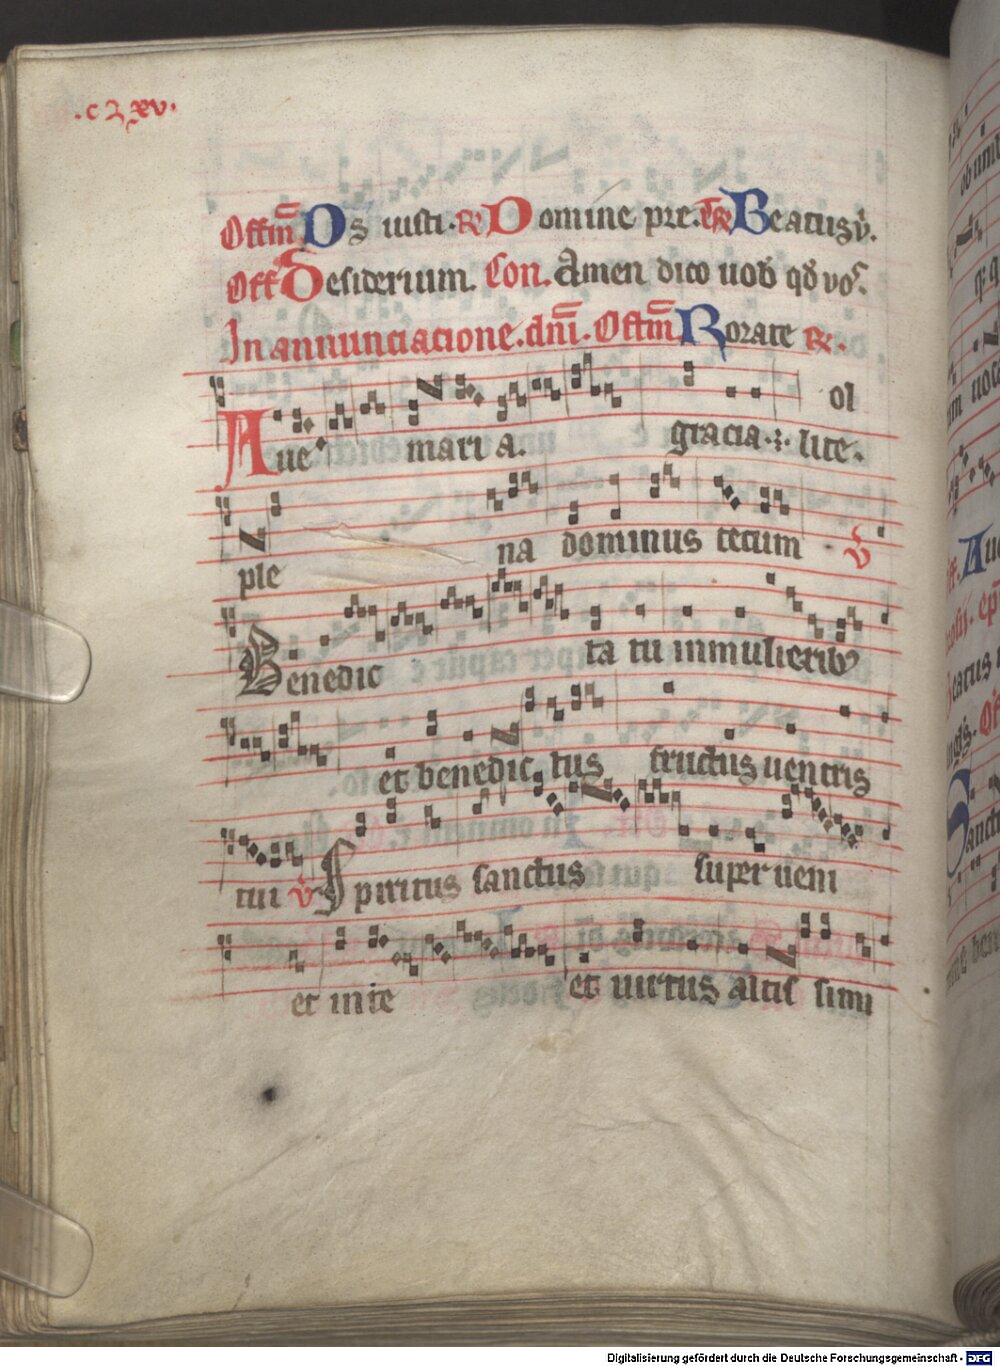 .c lxv.
Offm̄ Os iusti. R Domine pre. Tr̄ Beatus v.
Off Desiderium. Con. Amen dico uob qd vos.
In annunciacione. dnī. Offm̄ Rorate R.
ol
Aue mari a. gracia lite.
ple na dominus tecum v
Benedic ta tu in mulierib9
et benedic tus fructus uentris
tui v Spiritus sanctus superueni
et in te et uirtus altis simi
Digitalisierung gefördert durch die Deutsche Forschungsgemeinschaft - DFG